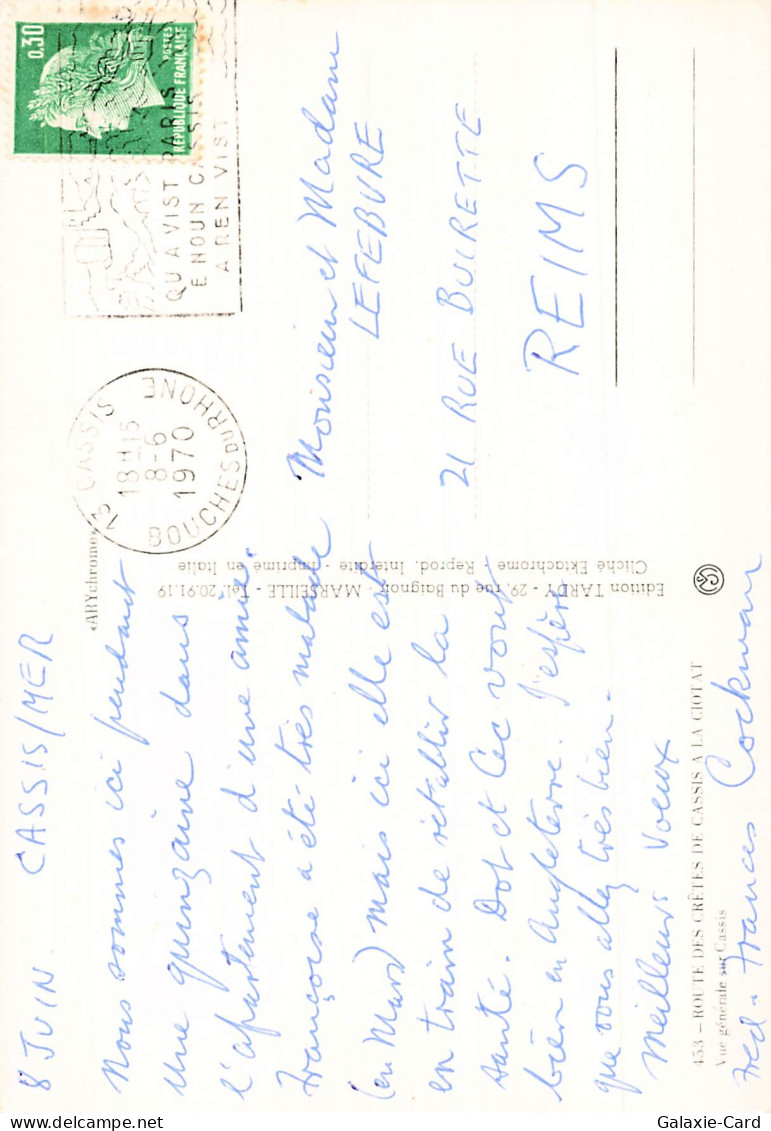 8 JUIN CASSIS/MER
Nous sommes ici pendant
une quinzaine dans
l'apartement d'une amie.
Françoise a été très malade
(en Mars) mais ici elle est
en train de rétablir la
santé. Dot et Cec vont
bien en Angleterre. J'espère
que vous allez très bien.
Meilleurs Voeux
Fred - Frances Cockman
«ARYchrome»
453 - ROUTE DES CRÊTES DE CASSIS A LA CIOTAT
Vue générale sur Cassis
Edition TARDY - 29, rue du Baignoir - MARSEILLE - Tél. 20.91.19
Cliché Ektachrome - Reprod. Interdite - Imprimé en Italie
13 CASSIS
18H15
8-6
1970
BOUCHES DU RHONE
QU A VIST PARIS
E NOUN CASSIS
A REN VIST
0,30
POSTES
REPUBLIQUE FRANÇAISE
Monsieur et Madame
LEFEBURE
21 RUE BUIRETTE
REIMS
Galaxie-Card